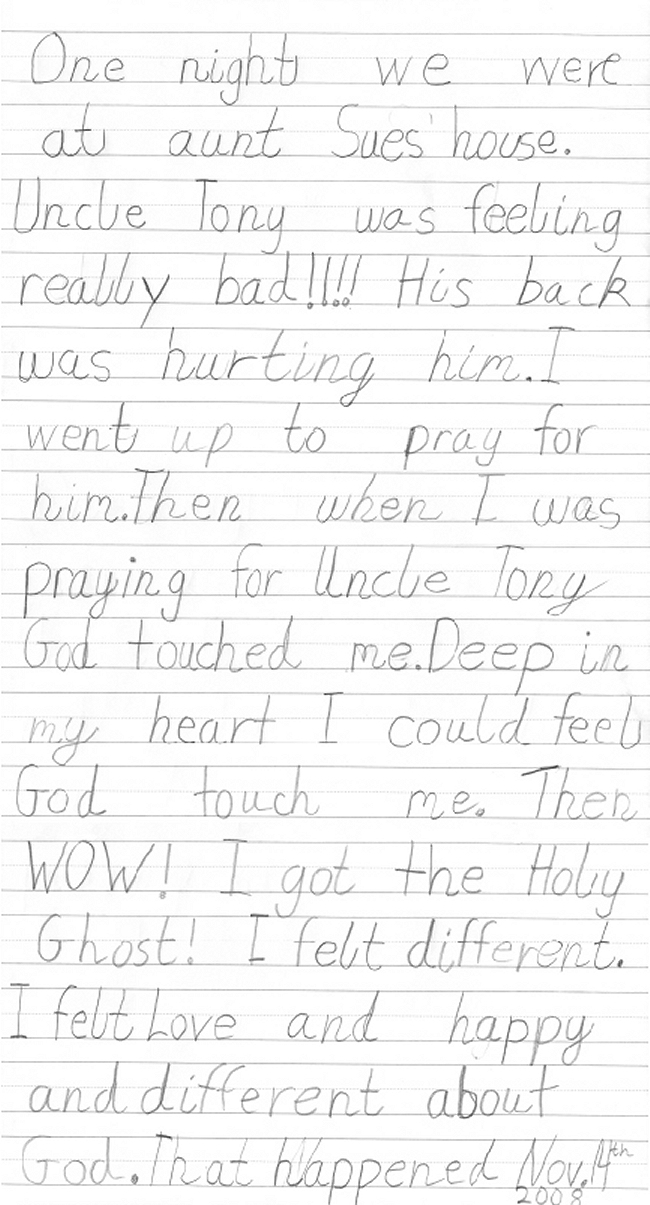 One night we were
at aunt Sues' house.
Uncle Tony was feeling
really bad!!!! His back
was hurting him.I
went up to pray for
him.Then when I was
praying for Uncle Tony
God touched me.Deep in
my heart I could feel
God touch me. Then
WOW! I got the Holy
Ghost! I felt different.
I felt Love and happy
and different about
God.That Happened Nov.14th
2008